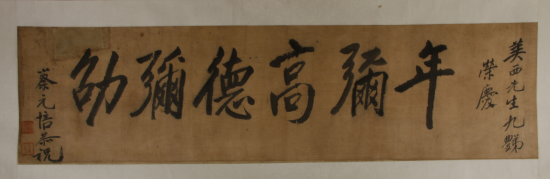 美西先生九豑
榮慶
年彌高德彌劭
蔡元培恭祝